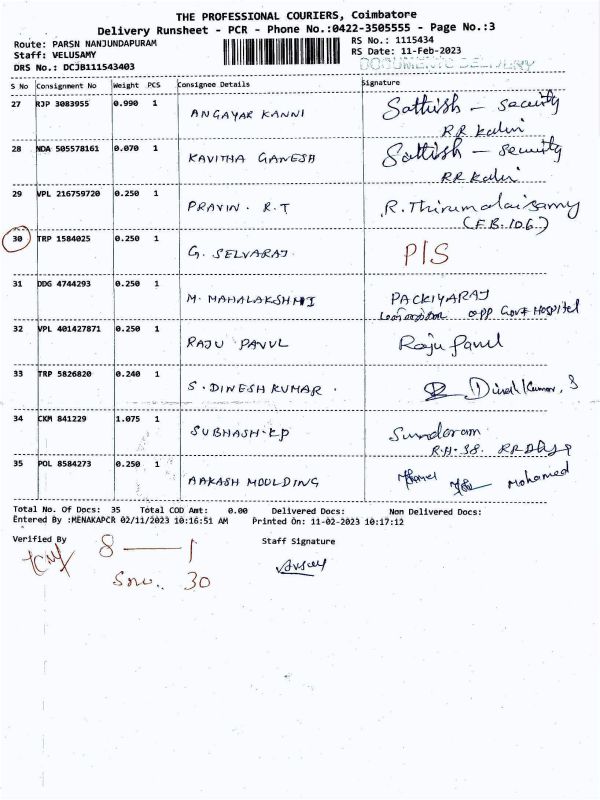 THE PROFESSIONAL COURIERS, Coimbatore
Delivery Runsheet - PCR - Phone No.:0422-3505555 - Page No.:3
Route: PARSN NANJUNDAPURAM
RS No.: 1115434
Staff: VELUSAMY
RS Date: 11-Feb-2023
DRS No.: DCJB111543403
DOCUMENTS DELIVERY
S No Consignment No Weight PCS Consignee Details Signature
27 RJP 3083955 0.990 1 ANGAYAR KANNI Sathish - security
R.R Kalin
28 NDA 505578161 0.070 1 KAVITHA GANESH Sathish - security
R.R Kalin
29 VPL 216759720 0.250 1 PRAVIN. R.T R. Thirumalaisamy
(F.B. 10.6.)
30 TRP 1584025 0.250 1 G. SELVARAJ P/S
31 DDG 4744293 0.250 1 M. MAHALAKSHMI PACKIYARAJ
opp Govt Hospital
32 VPL 401427871 0.250 1 RAJU PAVUL Raju Pavul
33 TRP 5826820 0.240 1 S. DINESH KUMAR. Dinesh Kumar. S
34 CKM 841229 1.075 1 SUBHASH.KP Sundaram
R.H-38.
35 POL 8584273 0.250 1 AAKASH MOULDING Mohamed
Total No. Of Docs: 35 Total COD Amt: 0.00 Delivered Docs: Non Delivered Docs:
Entered By :MENAKAPCR 02/11/2023 10:16:51 AM Printed On: 11-02-2023 10:17:12
Verified By Staff Signature
8 — 1
Sno. 30